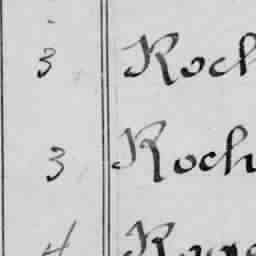 3 Roch
3 Roch
4